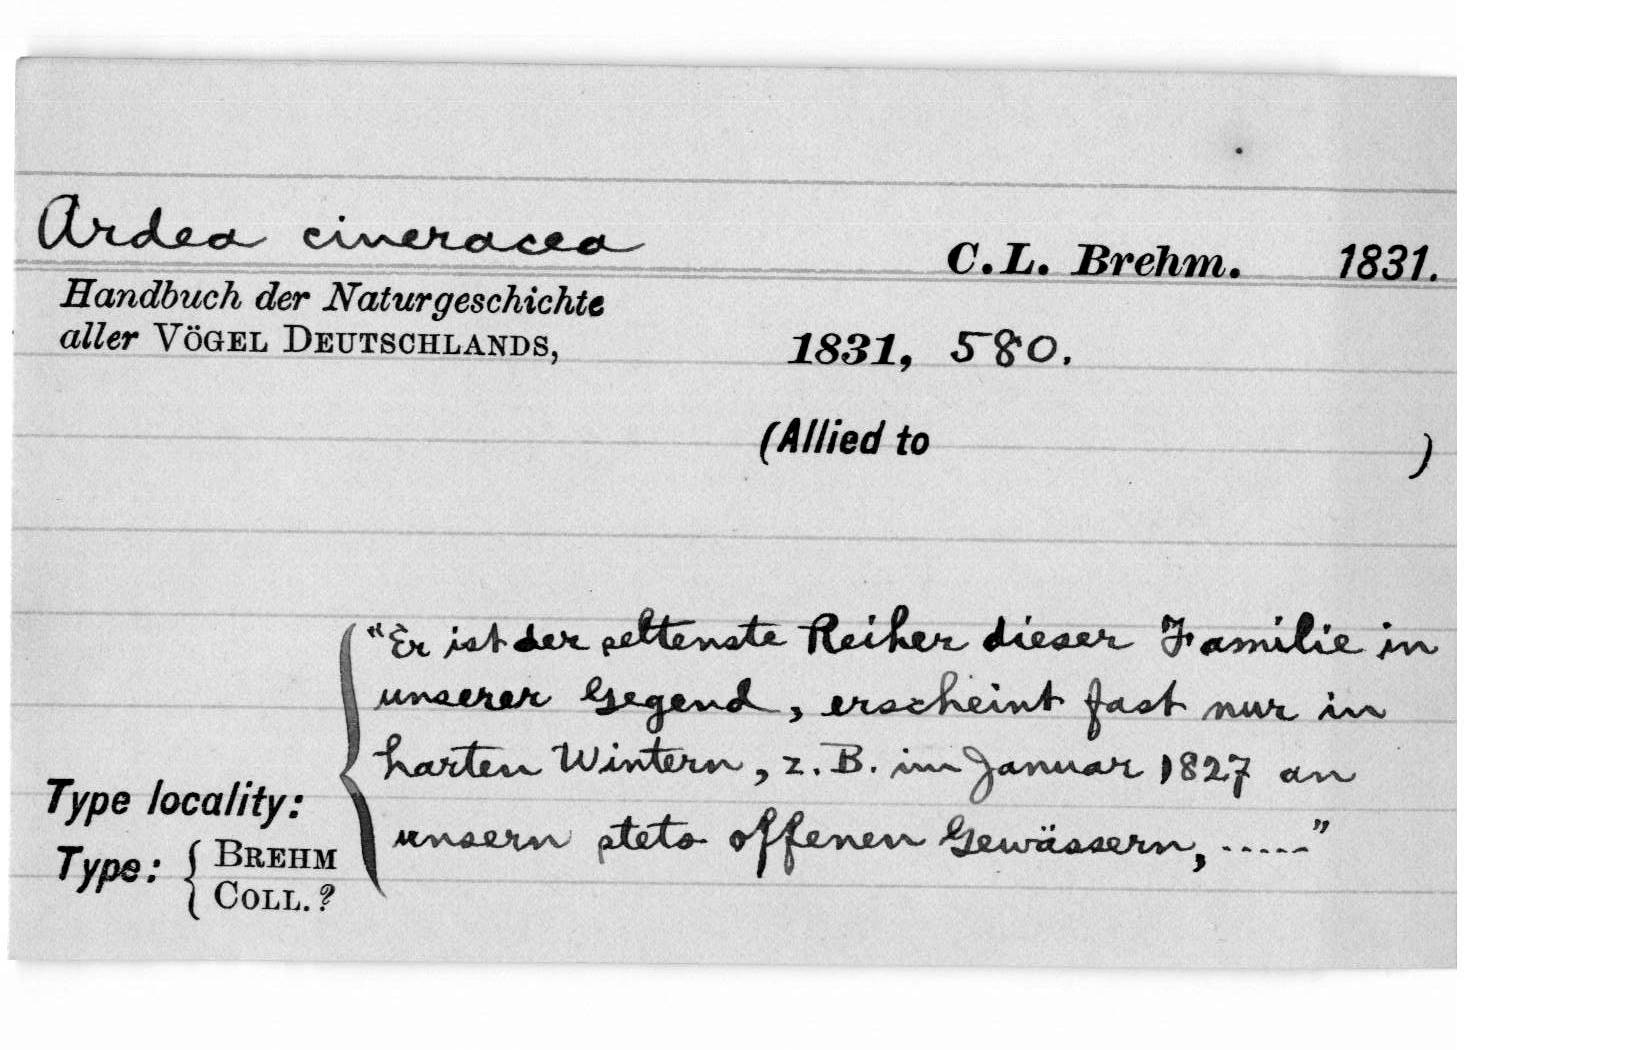 Ardea cineracea C.L. Brehm. 1831.
Handbuch der Naturgeschichte
aller VÖGEL DEUTSCHLANDS, 1831, 580.
(Allied to )
"Er ist der seltenste Reiher dieser Familie in
unserer Gegend, erscheint fast nur in
harten Wintern, z.B. im Januar 1827 an
unsern stets offenen Gewässern, ....."
Type locality:
Type: { BREHM
COLL.?